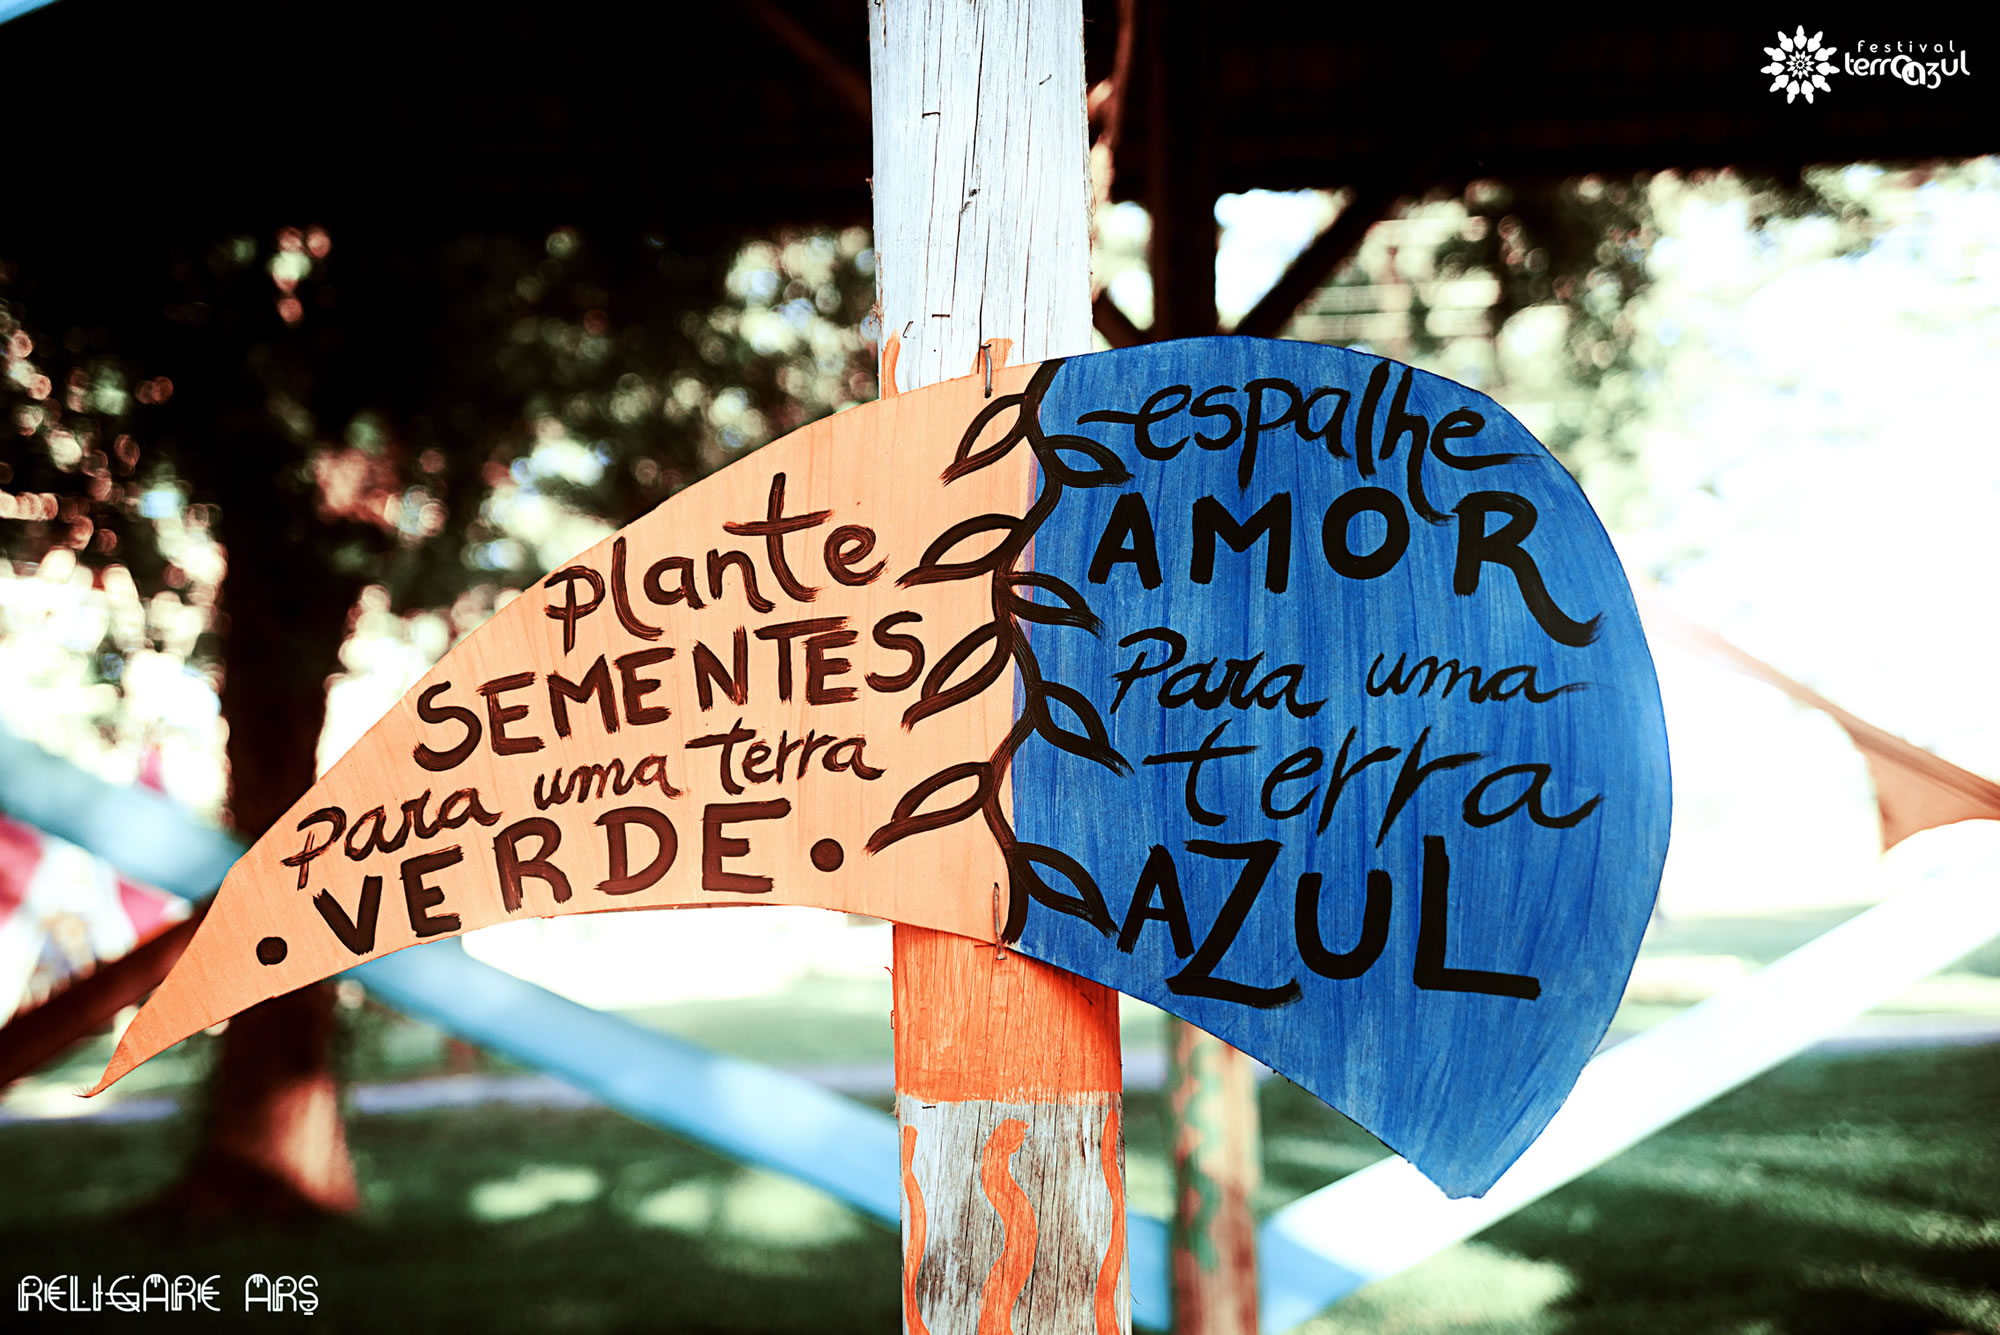 festival
terra azul
plante
SEMENTES
para uma terra
• VERDE •
espalhe
AMOR
Para uma
terra
AZUL
RELIGARE ARS